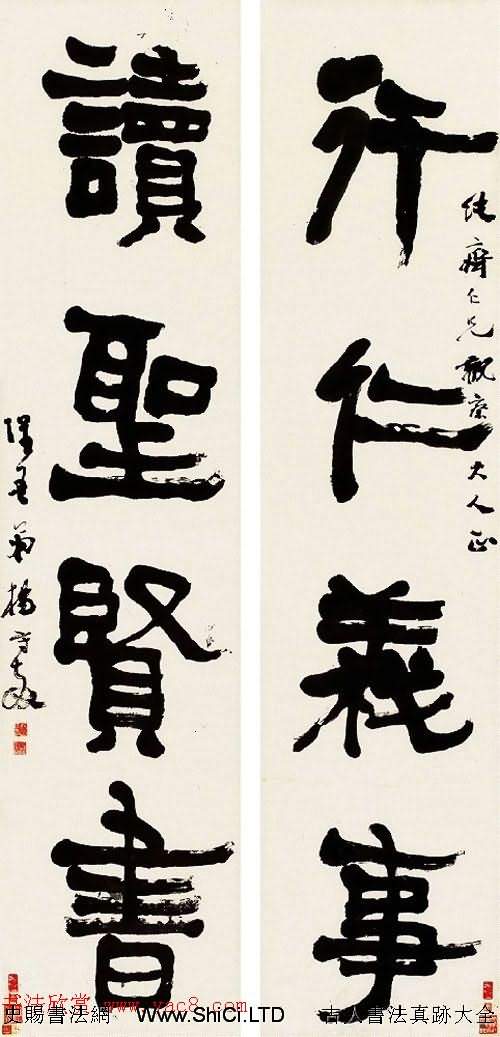 行仁義事
齋仁兄觀察大人正
讀聖賢書
惺吾弟楊守敬
书法欣赏 www.yac8.com
史賜書法網 www.ShiCi.LTD 古人書法真跡大全